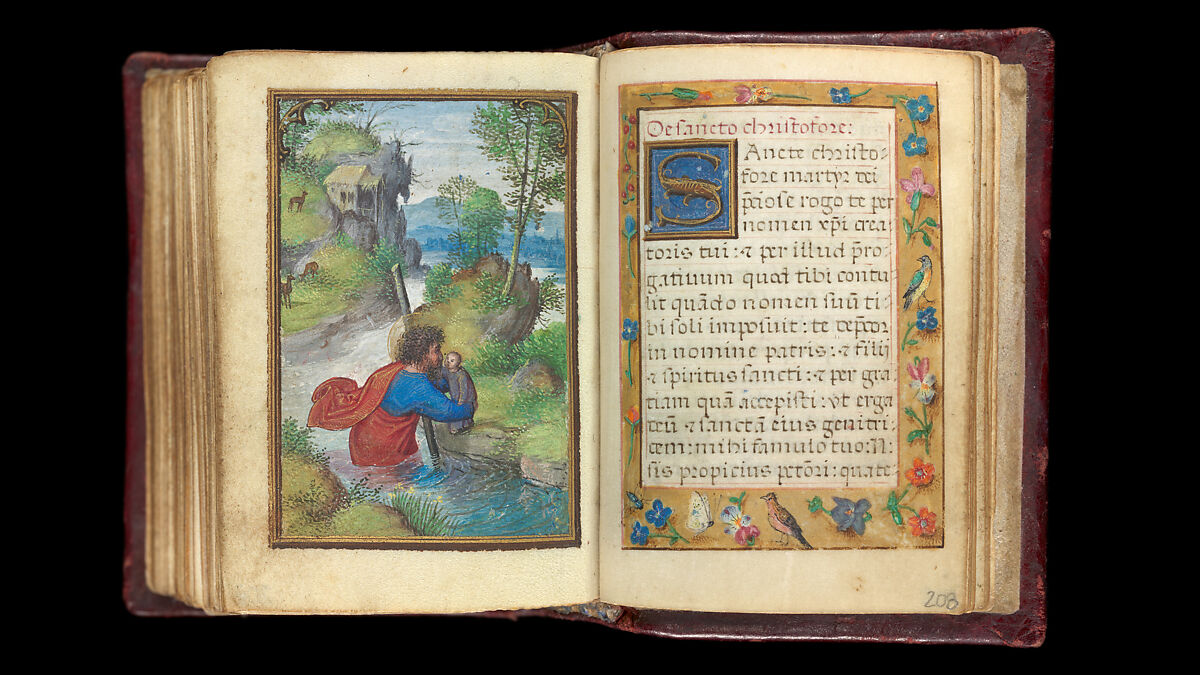 De sancto christofore:
SAncte christo=
fore martyr dei
p̄ciose rogo te per
nomen xp̄i crea
toris tui: ⁊ per illud p̄ro
gatiuum quod tibi contu
lit quādo nomen suū ti
bi soli imposuit: te dep̄cor
in nomine patris: ⁊ filij
⁊ spiritus sancti: ⁊ per gra
tiam quā accepisti: vt erga
deū ⁊ sanctā eius genitri
cem: mihi famulo tuo: N:
sis propicius pctōri: quate=
208